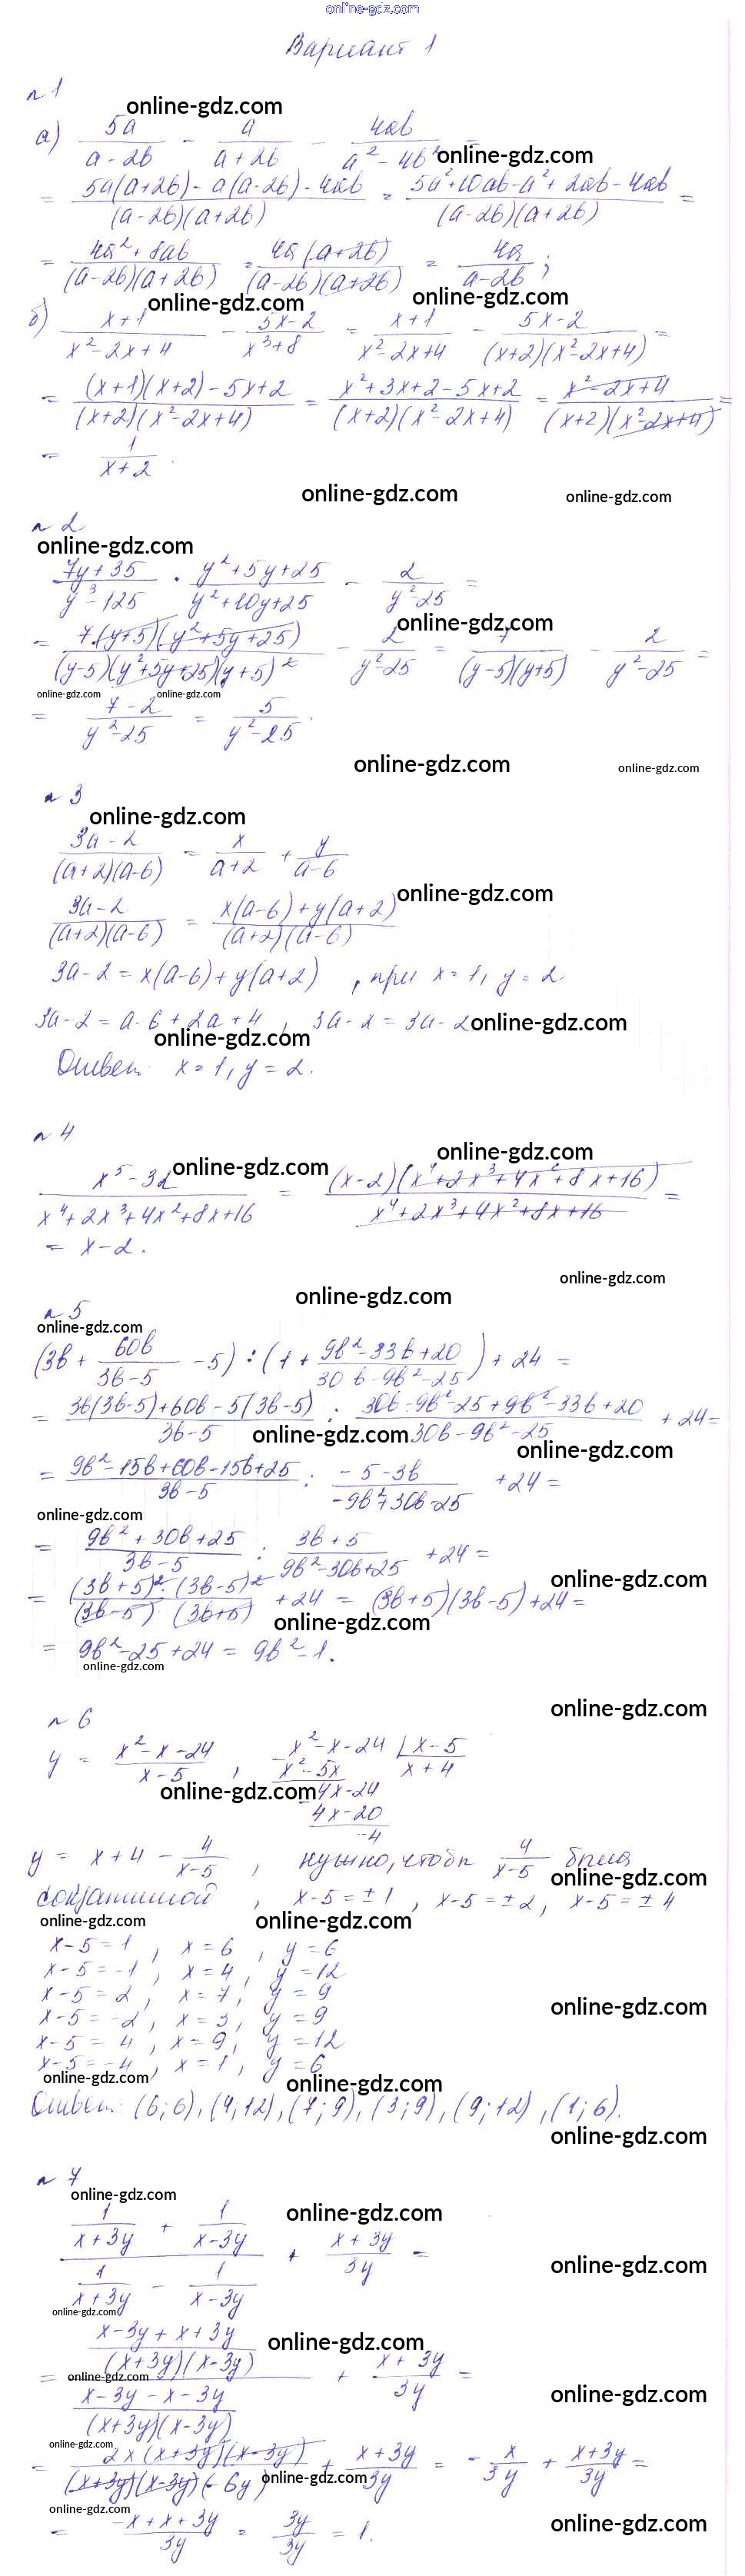 online-gdz.com
Вариант 1
№1
online-gdz.com
а) 5a/(a-2b) - a/(a+2b) - 4ab/(a²-4b²) =
online-gdz.com
= (5a(a+2b) - a(a-2b) - 4ab)/((a-2b)(a+2b)) = (5a²+10ab-a²+2ab-4ab)/((a-2b)(a+2b)) =
= (4a²+8ab)/((a-2b)(a+2b)) = 4a(a+2b)/((a-2b)(a+2b)) = 4a/(a-2b) ;
online-gdz.com online-gdz.com
б) (x+1)/(x²-2x+4) - (5x-2)/(x³+8) = (x+1)/(x²-2x+4) - (5x-2)/((x+2)(x²-2x+4)) =
= ((x+1)(x+2)-5x+2)/((x+2)(x²-2x+4)) = (x²+3x+2-5x+2)/((x+2)(x²-2x+4)) = (x²-2x+4)/((x+2)(x²-2x+4)) =
= 1/(x+2) .
online-gdz.com online-gdz.com
№2
online-gdz.com
(7y+35)/(y³-125) · (y²+5y+25)/(y²+10y+25) - 2/(y²-25) =
online-gdz.com
= 7(y+5)(y²+5y+25)/((y-5)(y²+5y+25)(y+5)²) - 2/(y²-25) = 7/((y-5)(y+5)) - 2/(y²-25) =
online-gdz.com online-gdz.com
= (7-2)/(y²-25) = 5/(y²-25) .
online-gdz.com online-gdz.com
№3
online-gdz.com
(3a-2)/((a+2)(a-6)) = x/(a+2) + y/(a-6)
online-gdz.com
(3a-2)/((a+2)(a-6)) = (x(a-6)+y(a+2))/((a+2)(a-6))
3a-2 = x(a-6)+y(a+2) , при x=1, y=2
3a-2 = a-6+2a+4 , 3a-2 = 3a-2 online-gdz.com
online-gdz.com
Ответ: x=1, y=2.
№4
online-gdz.com
online-gdz.com
(x⁵-32)/(x⁴+2x³+4x²+8x+16) = (x-2)(x⁴+2x³+4x²+8x+16)/(x⁴+2x³+4x²+8x+16) =
= x-2 .
online-gdz.com
online-gdz.com
№5
online-gdz.com
(3b + 60b/(3b-5) - 5) : (1 + (9b²-33b+20)/(30b-9b²-25)) + 24 =
= (3b(3b-5)+60b-5(3b-5))/(3b-5) : (30b-9b²-25+9b²-33b+20)/(30b-9b²-25) + 24 =
online-gdz.com online-gdz.com
= (9b²-15b+60b-15b+25)/(3b-5) : (-5-3b)/(-9b²+30b-25) + 24 =
online-gdz.com
= (9b²+30b+25)/(3b-5) : (3b+5)/(9b²-30b+25) + 24 =
online-gdz.com
= (3b+5)²·(3b-5)²/((3b-5)(3b+5)) + 24 = (3b+5)(3b-5)+24 =
online-gdz.com
= 9b²-25+24 = 9b²-1.
online-gdz.com
online-gdz.com
№6
y = (x²-x-24)/(x-5) , x²-x-24 | x-5
x²-5x x+4
online-gdz.com 4x-24
4x-20
-4
y = x+4 - 4/(x-5) , нужно, чтобы 4/(x-5) была
online-gdz.com
, x-5=±1 , x-5=±2, x-5=±4
online-gdz.com online-gdz.com
x-5=1 , x=6 , y=6
x-5=-1 , x=4 , y=12
x-5=2 , x=7 , y=9
online-gdz.com
x-5=-2 , x=3 , y=9
x-5=4 , x=9 , y=12
x-5=-4 , x=1 , y=6
online-gdz.com online-gdz.com
Ответ: (6;6), (4;12), (7;9), (3;9), (9;12), (1;6).
online-gdz.com
№7
online-gdz.com
online-gdz.com
(1/(x+3y) + 1/(x-3y))/(1/(x+3y) - 1/(x-3y)) + (x+3y)/3y =
online-gdz.com
online-gdz.com
online-gdz.com
= ((x-3y+x+3y)/((x+3y)(x-3y)))/((x-3y-x-3y)/((x+3y)(x-3y))) + (x+3y)/3y =
online-gdz.com
online-gdz.com
online-gdz.com
= 2x(x+3y)(x-3y)/((x+3y)(x-3y)(-6y)) + (x+3y)/3y = -x/3y + (x+3y)/3y =
online-gdz.com
online-gdz.com
online-gdz.com
= (-x+x+3y)/3y = 3y/3y = 1.